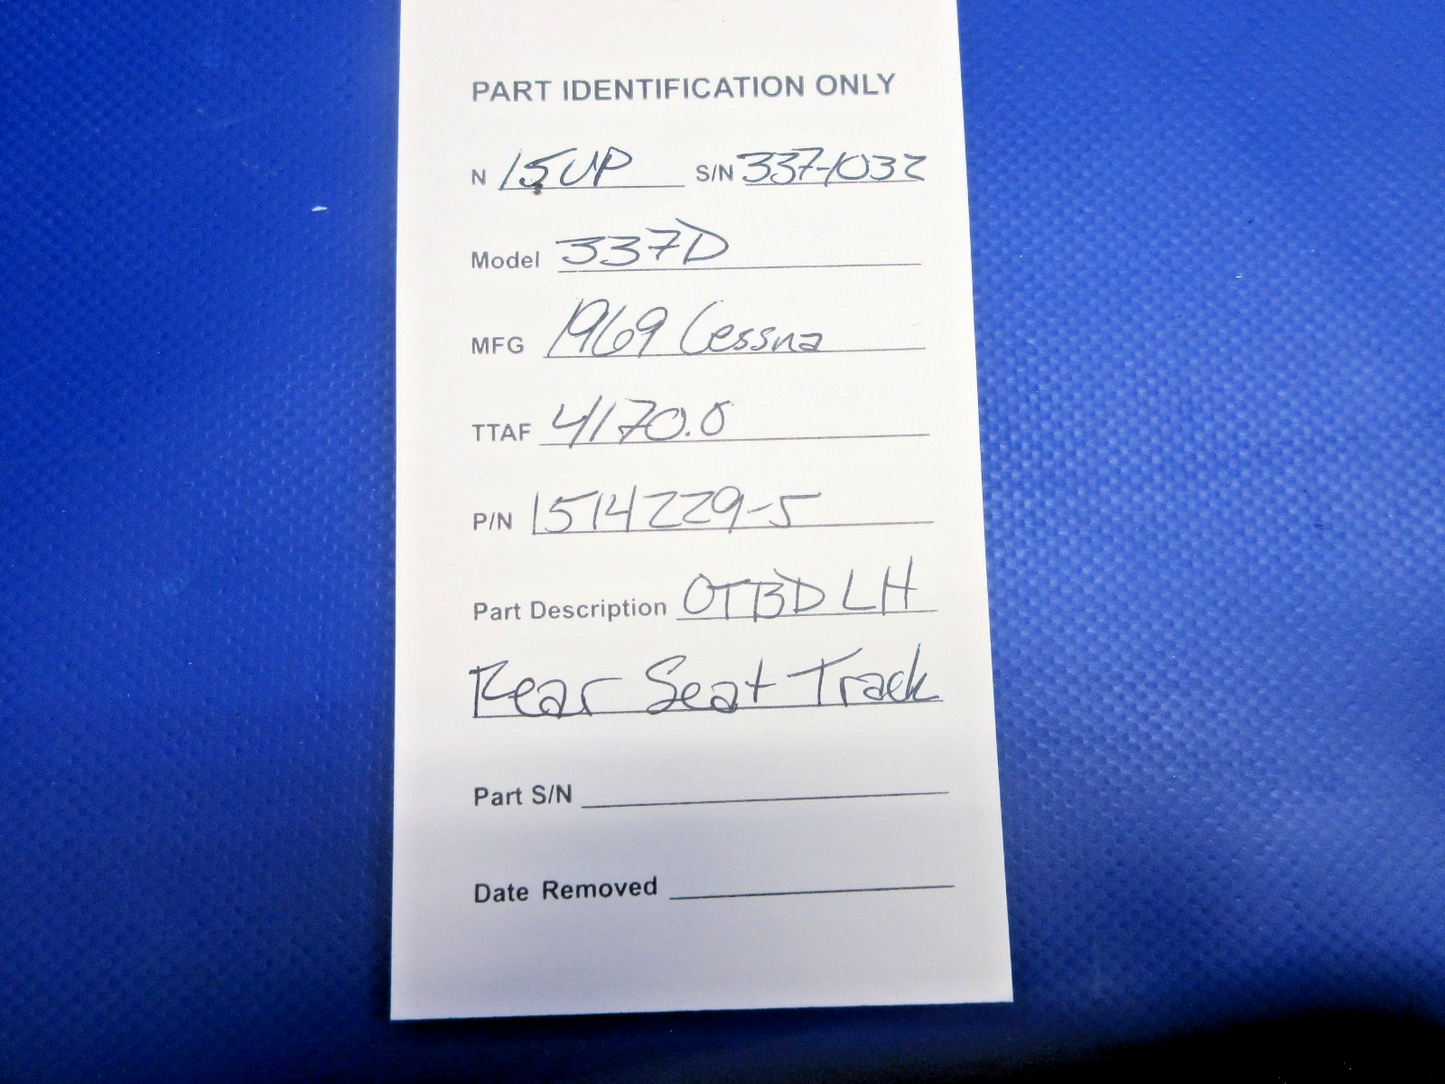 PART IDENTIFICATION ONLY
N 15UP S/N 337-1032
Model 337D
MFG 1969 Cessna
TTAF 4170.0
P/N 1514229-5
Part Description OTBD LH
Rear Seat Track
Part S/N
Date Removed